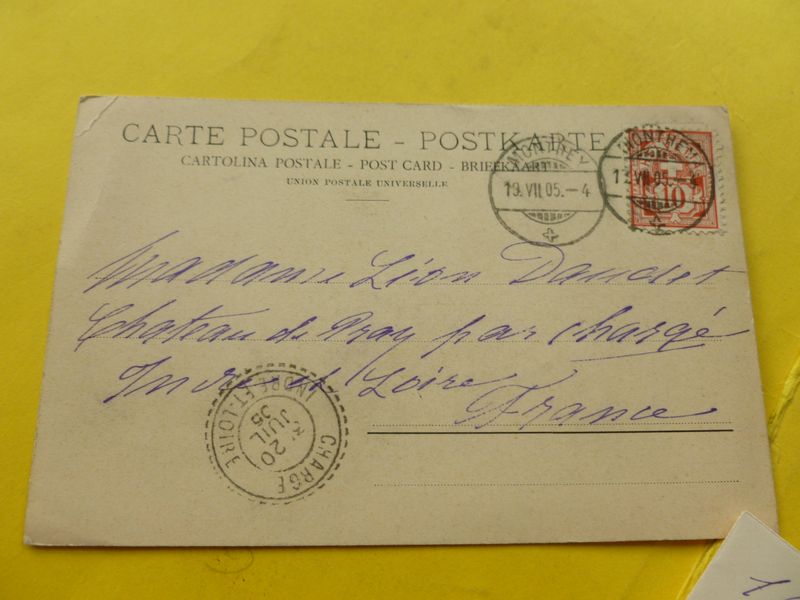 CARTE POSTALE - POSTKARTE
CARTOLINA POSTALE - POST CARD - BRIEFKAART
UNION POSTALE UNIVERSELLE
MONTHEY
19.VII.05.-4
MONTHEY
19.VII.05.-4
10
Madame Léon Daudet
Chateau de Pray par chargé
Indre et Loire
France
CHARGÉ
INDRE-ET-LOIRE
20
JUIL
05